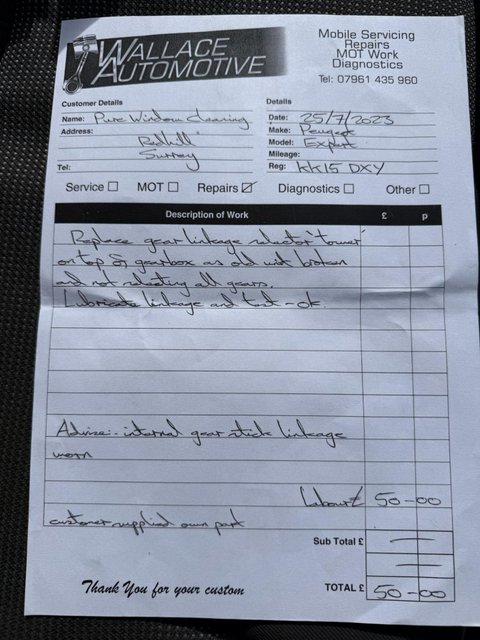 WALLACE
AUTOMOTIVE
Mobile Servicing
Repairs
MOT Work
Diagnostics
Tel: 07961 435 960
Customer Details
Name: Pure Window Cleaning
Address: Redhill
Surrey
Tel:
Details
Date: 25/7/2023
Make: Peugeot
Model: Expert
Mileage:
Reg: KK15 DXY
Service MOT Repairs Diagnostics Other
Description of Work £ p
Replace gear linkage selector 'tower'
on top of gearbox as old unit broken
and not selecting all gears.
Lubricate linkage and test - ok.
Advise:- internal gear stick linkage
worn
Labour £ 50-00
customer supplied own part
Sub Total £
Thank You for your custom
TOTAL £ 50-00